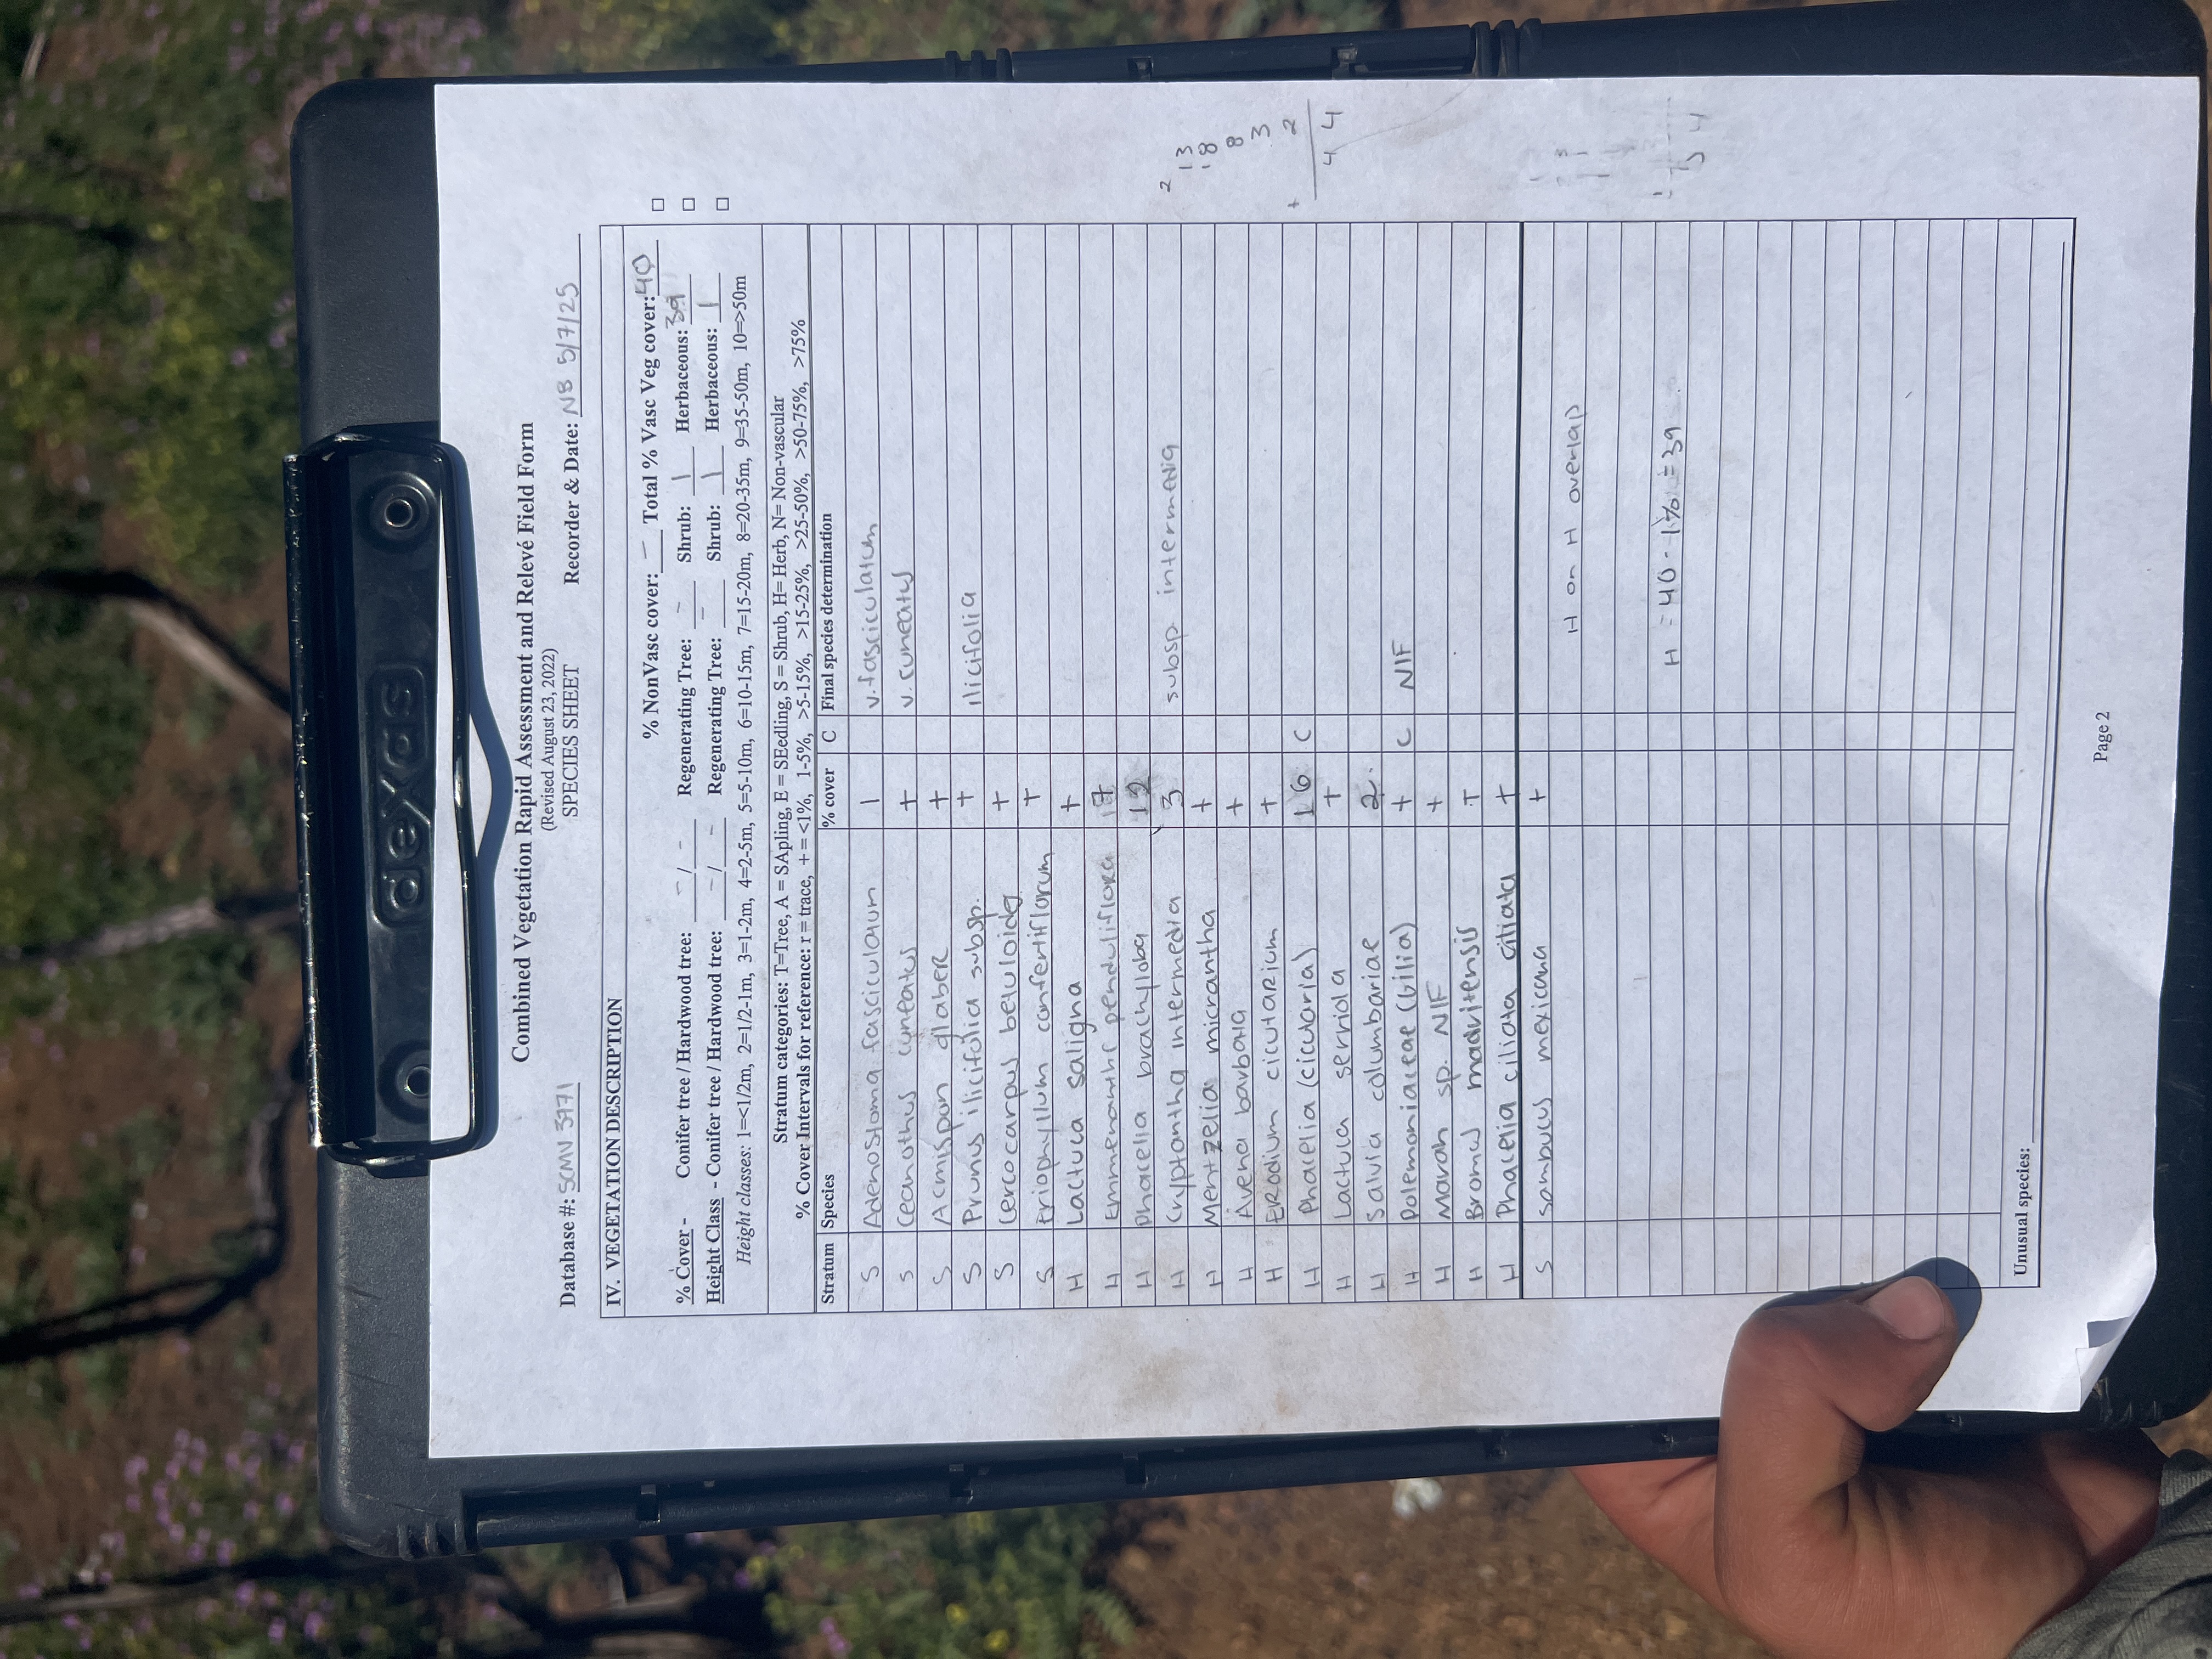 dexas
Combined Vegetation Rapid Assessment and Relevé Field Form
(Revised August 23, 2022)
Database #: SCMV 3971 SPECIES SHEET Recorder & Date: NB 5/7/25
IV. VEGETATION DESCRIPTION
% NonVasc cover: — Total % Vasc Veg cover: 40
% Cover - Conifer tree / Hardwood tree: - / - Regenerating Tree: - Shrub: 1 Herbaceous: 39
Height Class - Conifer tree / Hardwood tree: - / - Regenerating Tree: - Shrub: 1 Herbaceous: 1
Height classes: 1=<1/2m, 2=1/2-1m, 3=1-2m, 4=2-5m, 5=5-10m, 6=10-15m, 7=15-20m, 8=20-35m, 9=35-50m, 10=>50m
Stratum categories: T=Tree, A = SApling, E = SEedling, S = Shrub, H= Herb, N= Non-vascular
% Cover Intervals for reference: r = trace, + = <1%, 1-5%, >5-15%, >15-25%, >25-50%, >50-75%, >75%
Stratum Species % cover C Final species determination
S Adenostoma fasciculatum 1 v. fasciculatum
S Ceanothus cuneatus + v. cuneatus
S Acmispon glaber +
S Prunus ilicifolia subsp. + ilicifolia
S Cercocarpus betuloides +
S Eriophyllum confertiflorum +
H Lactuca saligna +
H Emmenanthe penduliflora 17
H Phacelia brachyloba 12
H Cryptantha intermedia 3 subsp intermedia
H Mentzelia micrantha +
H Avena barbata +
H Erodium cicutarium +
H Phacelia (cicutaria) 16 C
H Lactuca serriola +
H Salvia columbariae 2
H Polemoniaceae (Gilia) + C NIF
H Marah sp. NIF +
H Bromus madritensis +
H Phacelia ciliata ciliata +
S Sambucus mexicana +
2
13
18
8
3
+ 2
44
H on H overlap
H = 40 - 1% = 39
Unusual species:
Page 2